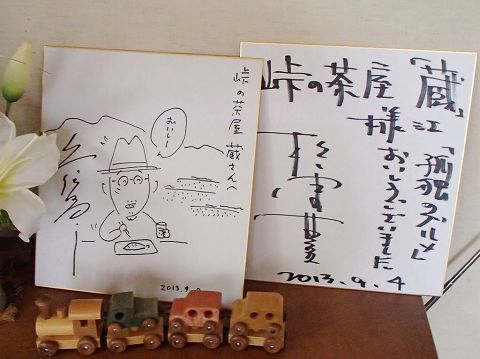 峠の茶屋
蔵さんへ
おいしーい
2013.9.2
「孤独のグルメ」
峠の茶屋「蔵」江
様
おいしうございました
2013.9.4